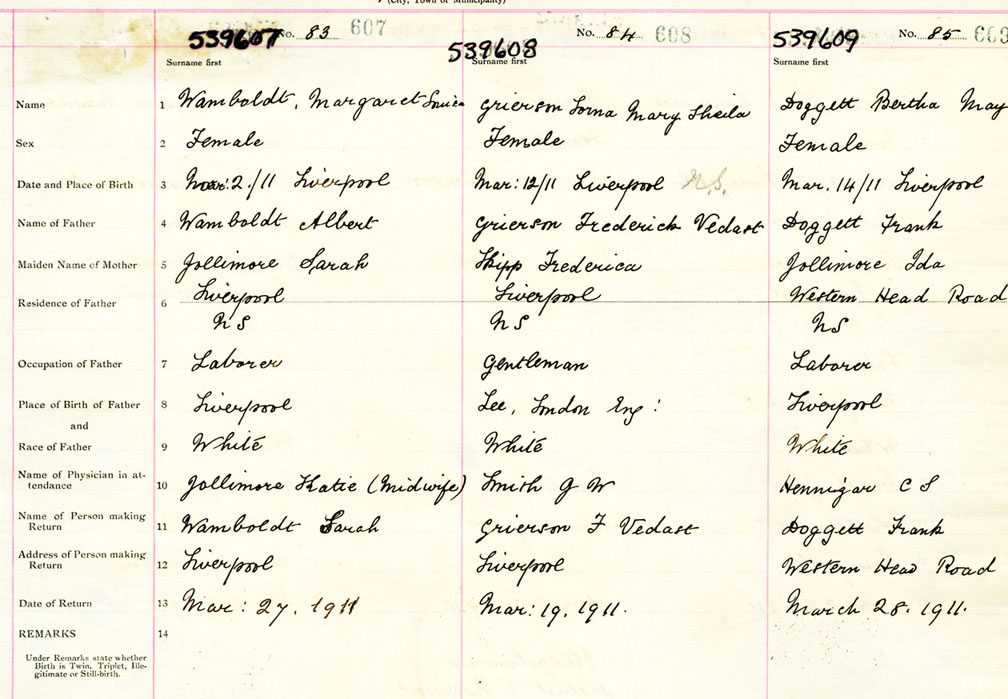 (City, Town or Municipality)
539607 No. 83 607
539608 No. 84 608
539609 No. 85
Surname first Surname first Surname first
Name 1 Wamboldt, Margaret Grierson Lorna Mary Sheila Doggett Bertha May
Sex 2 Female Female Female
Date and Place of Birth 3 2/11 Liverpool Mar: 12/11 Liverpool N.S. Mar. 14/11 Liverpool
Name of Father 4 Wamboldt Albert Grierson Frederick Vedast Doggett Frank
Maiden Name of Mother 5 Jollimore Sarah Skipp Frederica Jollimore Ida
Residence of Father 6 Liverpool Liverpool Western Head Road
NS NS NS
Occupation of Father 7 Laborer Gentleman Laborer
Place of Birth of Father 8 Liverpool Lee, London Eng: Liverpool
and
Race of Father 9 White White White
Name of Physician in at-
tendance 10 Jollimore Katie (Midwife) Smith G W Hennigar C S
Name of Person making
Return 11 Wamboldt Sarah Grierson F Vedast Doggett Frank
Address of Person making
Return 12 Liverpool Liverpool Western Head Road
Date of Return 13 Mar: 27. 1911 Mar: 19. 1911. March 28. 1911.
REMARKS 14
Under Remarks state whether
Birth is Twin, Triplet, Ille-
gitimate or Still-birth.